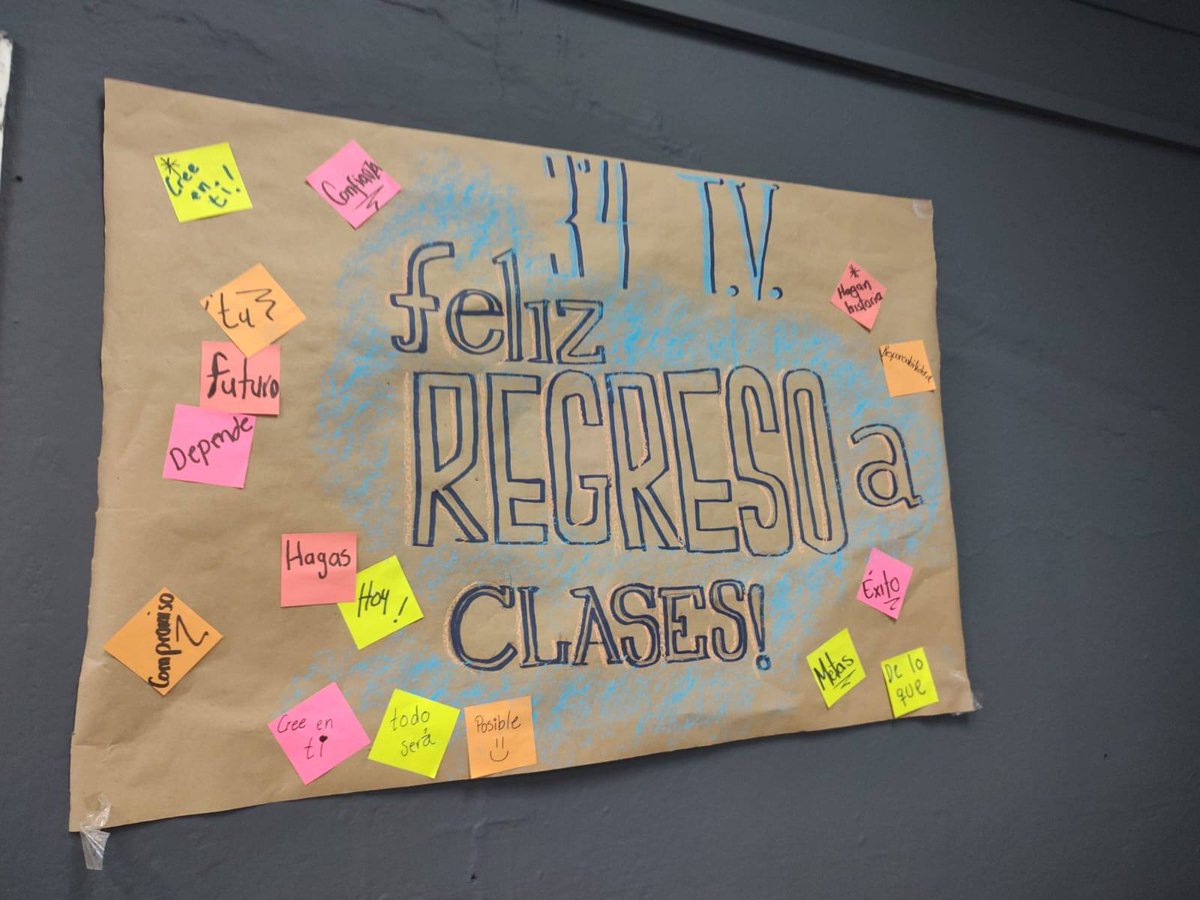 3°4 T.V.
feliz
REGRESO a
CLASES!
* Cree
en
ti!
Confianza
tu
futuro
Depende
Hagas
Hoy!
Compromiso
Cree en
ti
todo
será
Posible
* Hagan
historia
Responsabilidad
Éxito
Metas
De lo
que